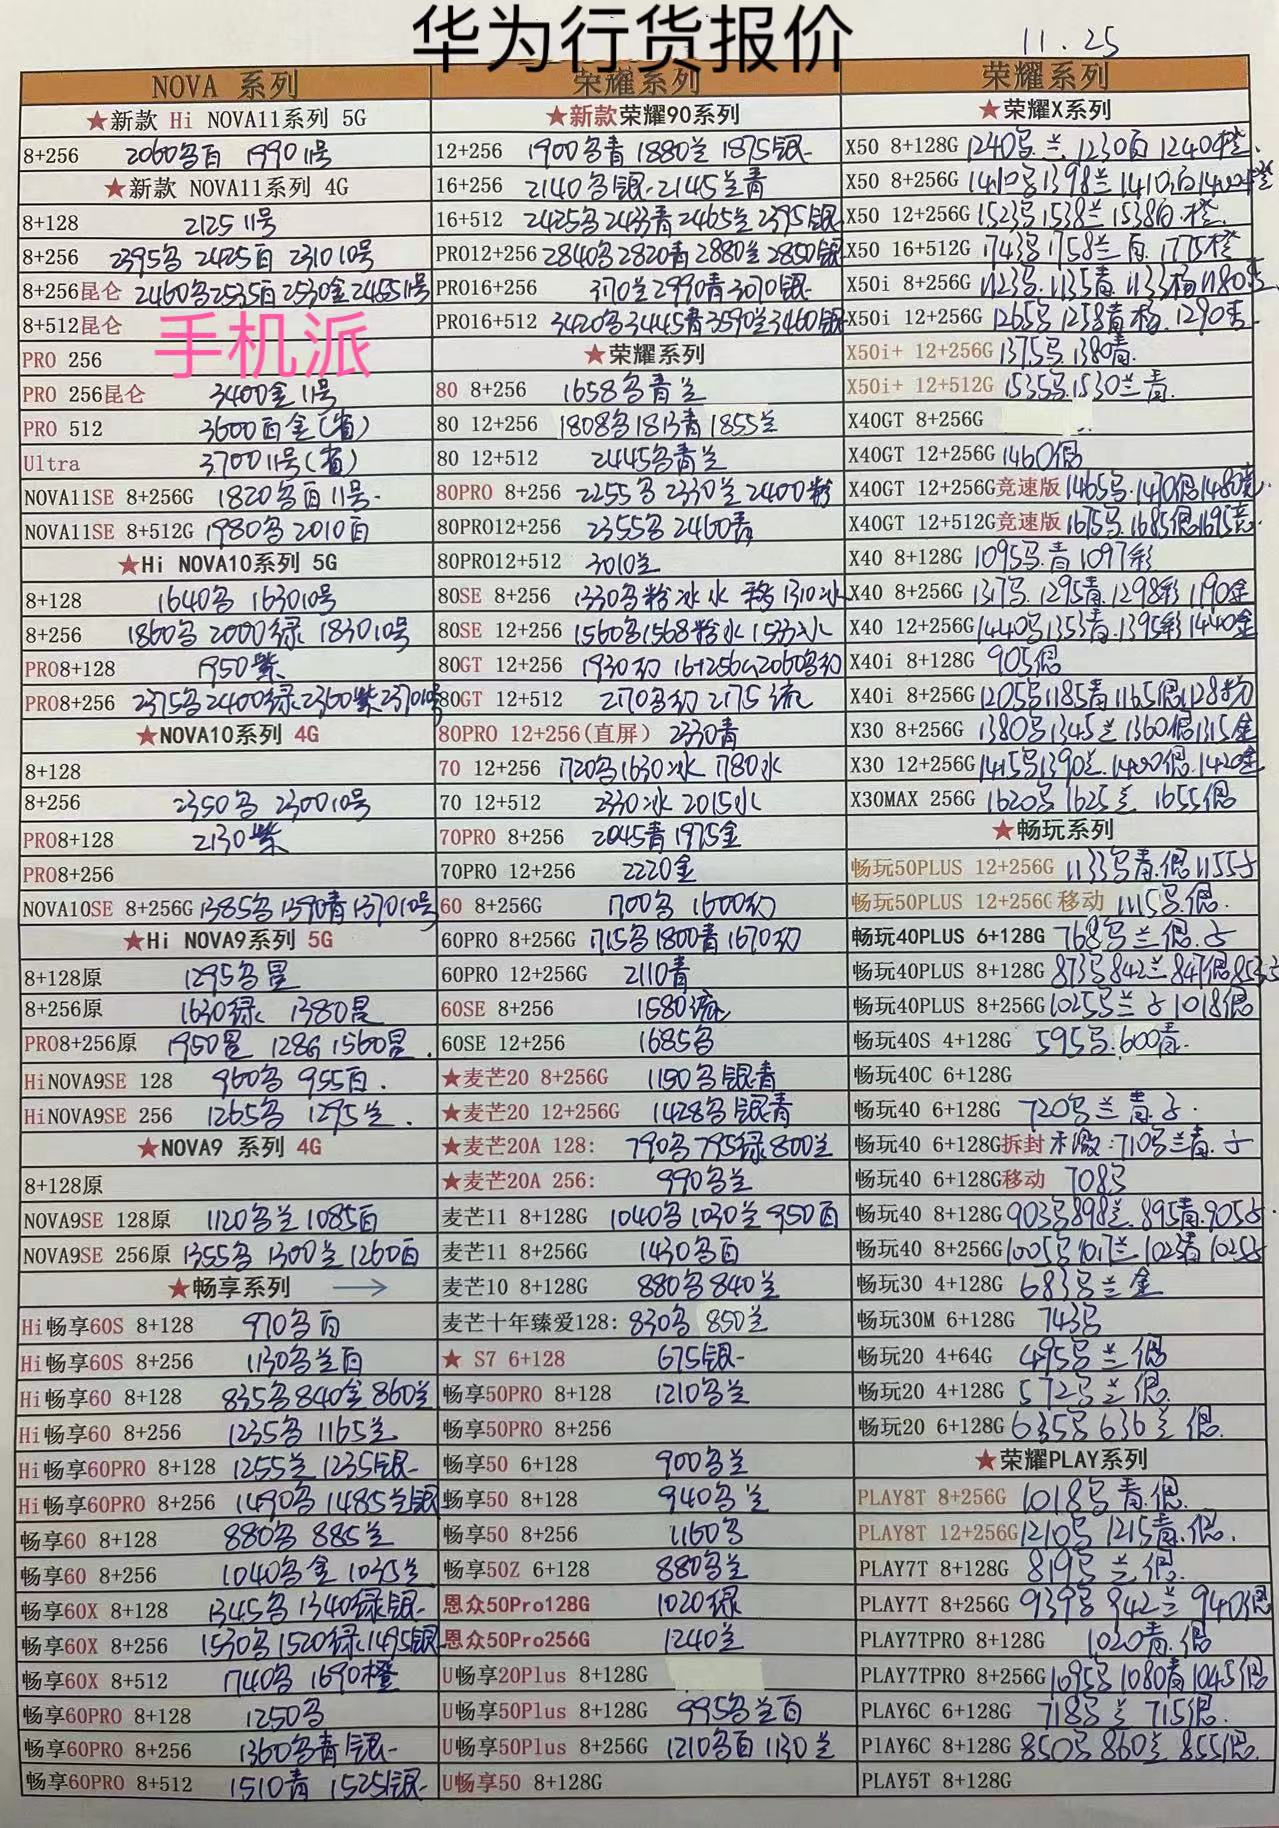 华为行货报价
11.25
NOVA 系列
★新款 Hi NOVA11系列 5G
8+256 2060名百 1990 11号
★新款 NOVA11系列 4G
8+128 2125 11号
8+256 2395名 2425百 2310 10号
8+256昆仑 2460名2535百2530金2455 11号
8+512昆仑
手机派
PRO 256
PRO 256昆仑 3400金 11号
PRO 512 3600百金(省)
Ultra 3700 11号(省)
NOVA11SE 8+256G 1820名百 11号
NOVA11SE 8+512G 1980名 2010百
★Hi NOVA10系列 5G
8+128 1640名 1630 10号
8+256 1860名 2000绿 1830 10号
PRO8+128 1950紫
PRO8+256 2375名2400绿2360紫2370 10号
★NOVA10系列 4G
8+128
8+256 2350名 2300 10号
PRO8+128 2130紫
PRO8+256
NOVA10SE 8+256G 1385名1390青1370 10号
★Hi NOVA9系列 5G
8+128原 1295名星
8+256原 1630绿 1380星
PRO8+256原 1950星 128G 1560星
HiNOVA9SE 128 960名 955百
HiNOVA9SE 256 1265名 1295兰
★NOVA9 系列 4G
8+128原
NOVA9SE 128原 1120名兰 1085百
NOVA9SE 256原 1355名 1300兰 1260百
★畅享系列 →
Hi畅享60S 8+128 970名百
Hi畅享60S 8+256 1130名兰百
Hi畅享60 8+128 835名840金860兰
Hi畅享60 8+256 1235名 1165兰
Hi畅享60PRO 8+128 1255兰 1235银
Hi畅享60PRO 8+256 1490名1485兰银
畅享60 8+128 880名 885兰
畅享60 8+256 1040名金 1035兰
畅享60X 8+128 1345名1340绿银
畅享60X 8+256 1530名1520绿1495银
畅享60X 8+512 1740名 1690橙
畅享60PRO 8+128 1250名
畅享60PRO 8+256 1360名青银
畅享60PRO 8+512 1510青 1525银
荣耀系列
★新款荣耀90系列
12+256 1900名青 1880兰 1875银
16+256 2140名银 2145兰青
16+512 2425名2433青2465兰2395银
PRO12+256 2840名2820青2880兰2850银
PRO16+256 2990青3070银
PRO16+512 3420名3445青3590兰3460银
★荣耀系列
80 8+256 1658名青兰
80 12+256 1808名1813青1855兰
80 12+512 2445名青兰
80PRO 8+256 2255名 2330兰 2400粉
80PRO12+256 2355名 2460青
80PRO12+512 3010兰
80SE 8+256 1330名粉冰水 1310冰
80SE 12+256 1560名1568粉水 1533冰
80GT 12+256 1930幻 16+256G2060名幻
80GT 12+512 2170名幻 2175流
80PRO 12+256(直屏) 2330青
70 12+256 1720名1630冰 1780水
70 12+512 2330冰 2015水
70PRO 8+256 2045青 1975金
70PRO 12+256 2220金
60 8+256G 1700名 1600幻
60PRO 8+256G 1715名1800青1670幻
60PRO 12+256G 2110青
60SE 8+256 1580流
60SE 12+256 1685名
★麦芒20 8+256G 1150名银青
★麦芒20 12+256G 1428名银青
★麦芒20A 128: 790名 795绿800兰
★麦芒20A 256: 990名兰
麦芒11 8+128G 1040名1030兰950百
麦芒11 8+256G 1430名百
麦芒10 8+128G 880名840兰
麦芒十年臻爱128: 830名 850兰
★ S7 6+128 675银
畅享50PRO 8+128 1210名兰
畅享50PRO 8+256
畅享50 6+128 900名兰
畅享50 8+128 940名兰
畅享50 8+256 1160名
畅享50Z 6+128 880名兰
恩众50Pro128G 1020绿
恩众50Pro256G 1240兰
U畅享20Plus 8+128G
U畅享50Plus 8+128G 995名兰百
U畅享50Plus 8+256G 1210名百 1130兰
U畅享50 8+128G
荣耀系列
★荣耀X系列
X50 8+128G 1240名兰 1230百 1240橙
X50 8+256G 1410名1398兰1410百1400橙
X50 12+256G 1523名1538兰1538百橙
X50 16+512G 1743名1758兰百1775橙
X50i 8+256G 1123名1135青1133杨1180杏
X50i 12+256G 1265名1258青杨1290杏
X50i+ 12+256G 1375名1380青
X50i+ 12+512G 1535名1530兰青
X40GT 8+256G
X40GT 12+256G 1460偶
X40GT 12+256G竞速版 1465名1470偶1480竞
X40GT 12+512G竞速版 1675名1685偶1695竞
X40 8+128G 1095名青1097彩
X40 8+256G 1317名1295青1298彩1190金
X40 12+256G 1440名1353青1395彩1440金
X40i 8+128G 905偶
X40i 8+256G 1205名1185青1165偶1128粉
X30 8+256G 1380名1345兰1360偶1315金
X30 12+256G 1415名1390兰1400偶1420金
X30MAX 256G 1620名1625兰 1655偶
★畅玩系列
畅玩50PLUS 12+256G 1133名青偶1155子
畅玩50PLUS 12+256G移动 1115名偶
畅玩40PLUS 6+128G 768名兰偶子
畅玩40PLUS 8+128G 873名842兰847偶853子
畅玩40PLUS 8+256G 1025名兰子1018偶
畅玩40S 4+128G 595名600青
畅玩40C 6+128G
畅玩40 6+128G 720名兰青子
畅玩40 6+128G拆封未激:710名兰青子
畅玩40 6+128G移动 708名
畅玩40 8+128G 903名898兰895青905子
畅玩40 8+256G 1005名1017兰1023青1025子
畅玩30 4+128G 683名兰金
畅玩30M 6+128G 743名
畅玩20 4+64G 495名兰偶
畅玩20 4+128G 572名兰偶
畅玩20 6+128G 635名636兰偶
★荣耀PLAY系列
PLAY8T 8+256G 1018名青偶
PLAY8T 12+256G 1210名1215青偶
PLAY7T 8+128G 819名兰偶
PLAY7T 8+256G 939名942兰940偶
PLAY7TPRO 8+128G 1020青偶
PLAY7TPRO 8+256G 1095名1080青1045偶
PLAY6C 6+128G 718名兰 715偶
PlAY6C 8+128G 850名860兰855偶
PLAY5T 8+128G